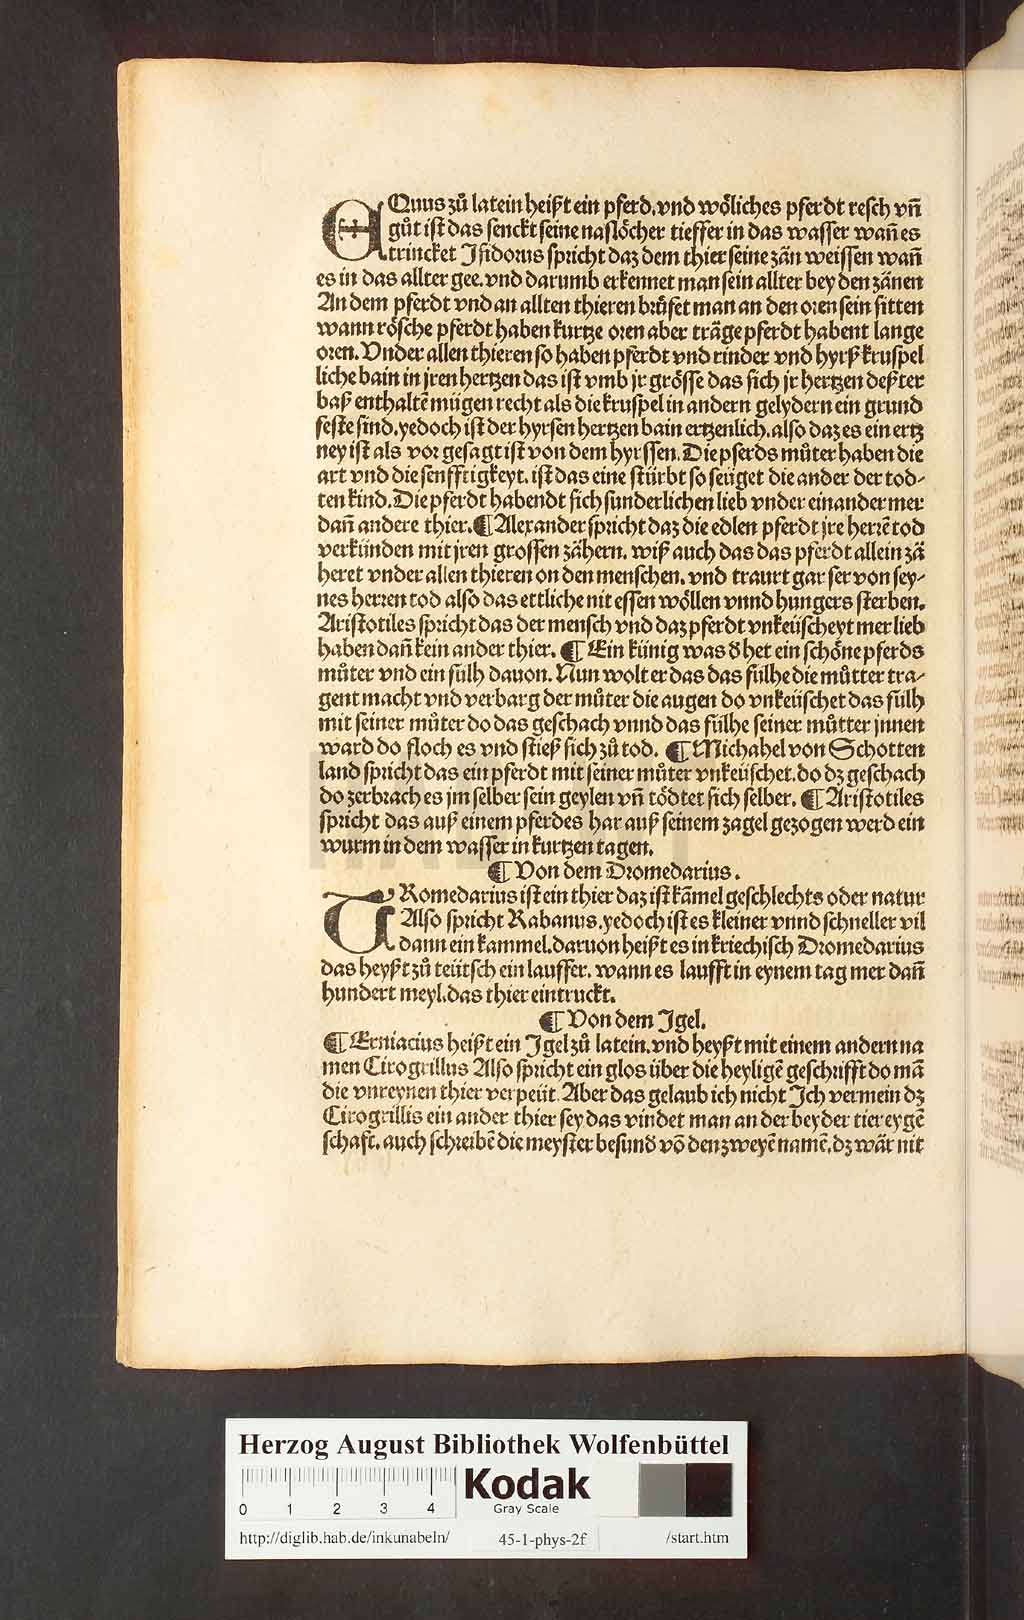 EQuus zů latein heißt ein pferd. vnd wo̊liches pferdt resch vn̄
gůt ist das senckt seine naslöcher tieffer in das wasser wan̄ es
trincket Isidorus spricht daz dem thier seine zän weissen wan̄
es in das allter gee. vnd darumb erkennet man sein allter bey den zänen
An dem pferdt vnd an allten thieren brůfet man an den oren sein sitten
wann rösche pferdt haben kurtze oren aber träge pferdt habent lange
oren. Vnder allen thieren so haben pferdt vnd rinder vnd hyrß kruspel
liche bain in jren hertzen das ist vmb jr grösse das sich jr hertzen deßter
baß enthaltē mügen recht als die kruspel in andern gelydern ein grund
feste sind. yedoch ist der hyrsen hertzen bain ertzenlich. also daz es ein ertz
ney ist als vor gesagt ist von dem hyrssen. Die pferds můter haben die
art vnd die senfftigkeyt. ist das eine stürbt so seüget die ander der tod-
ten kind. Die pferdt habendt sich sunderlichen lieb vnder einander mer
dan̄ andere thier. ¶ Alexander spricht daz die edlen pferdt jre herrē tod
verkünden mit jren grossen zähern. wiß auch das das pferdt allein zä
heret vnder allen thieren on den menschen. vnd traurt gar ser von sey-
nes herren tod also das ettliche nit essen wöllen vnnd hungers sterben.
Aristotiles spricht das der mensch vnd daz pferdt vnkeüscheyt mer lieb
haben dan̄ kein ander thier. ¶ Ein künig was d̕ het ein schöne pferds
můter vnd ein fülh dauon. Nun wolt er das das fülhe die můtter tra-
gent macht vnd verbarg der můter die augen do vnkeüschet das fülh
mit seiner můter do das geschach vnnd das fülhe seiner můtter jnnen
ward do floch es vnd stieß sich zů tod. ¶ Michahel von Schotten
land spricht das ein pferdt mit seiner můter vnkeüschet. do dz geschach
do zerbrach es jm selber sein geylen vn̄ tödtet sich selber. ¶ Aristotiles
spricht das auß einem pferdes har auß seinem zagel gezogen werd ein
wurm in dem wasser in kurtzen tagen.
¶ Von dem Dromedarius.
TRomedarius ist ein thier daz ist kāmel geschlechts oder natur
Also spricht Rabanus. yedoch ist es kleiner vnnd schneller vil
dann ein kammel. daruon heißt es in kriechisch Dromedarius
das heyßt zů teütsch ein lauffer. wann es laufft in eynem tag mer dan̄
hundert meyl. das thier eintruckt.
¶ Von dem Igel.
¶ Erniacius heißt ein Igel zů latein. vnd heyßt mit einem andern na
men Cirogrillus Also spricht ein glos über die heyligē geschrifft do mā
die vnreynen thier verpeüt. Aber das gelaub ich nicht Ich vermein dz
Cirogrillis ein ander thier sey das vindet man an der beyder tier eygē
schafft. auch schreibē die meyster besund vō den zweyē namē. dz wär nit
Herzog August Bibliothek Wolfenbüttel
0 1 2 3 4
Kodak
Gray Scale
http://diglib.hab.de/inkunabeln/ 45-1-phys-2f /start.htm